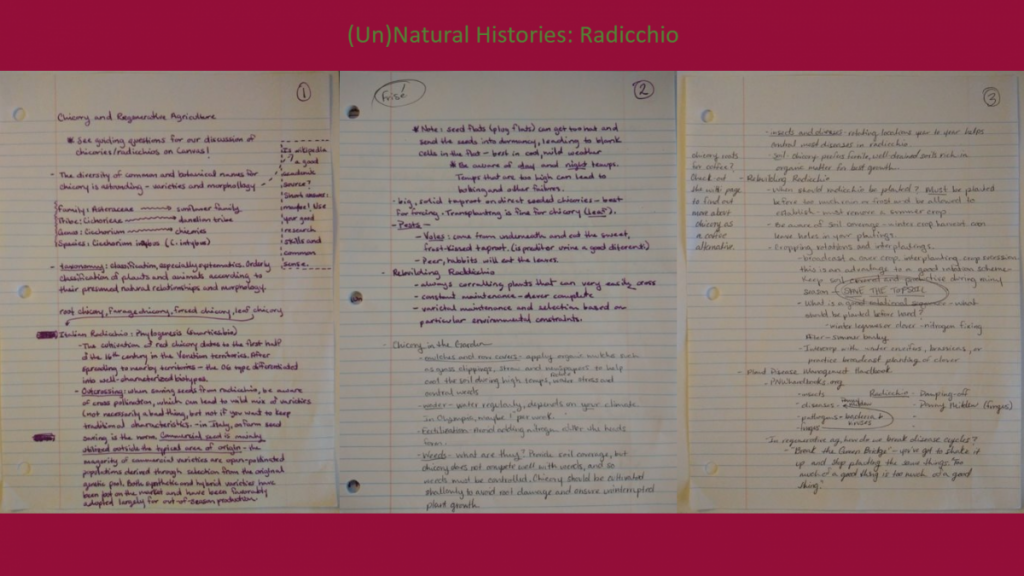 (Un)Natural Histories: Radicchio
1
Chicory and Regenerative Agriculture
* See guiding questions for our discussion of
chicories/radicchios on Canvas!
- The diversity of common and botanical names for
chicory is astounding - varieties and morphology
Is wikipedia
a good
academic
source?
Short answer:
maybe! Use
your good
research
skills and
common
sense.
Family: Asteraceae → sunflower family
Tribe: Cichorieae → dandelion tribe
Genus: Cichorium → chicories
Species: Cichorium intybus (C. intybus)
- taxonomy: classification, especially systematics. Orderly
classification of plants and animals according to
their presumed natural relationships and morphology.
root chicory, forage chicory, forced chicory, leaf chicory
Italian Radicchio: Phylogenesis
- The cultivation of red chicory dates to the first half
of the 16th century in the Venetian territories. After
spreading to nearby territories - the OG type differentiated
into well-characterized biotypes.
- Outcrossing: when saving seeds from radicchio, be aware
of cross pollination, which can lead to wild mix of varieties
(not necessarily a bad thing, but not if you want to keep
traditional characteristics. - in Italy, on farm seed
saving is the norm. Commercial seed is mainly
utilized outside the typical area of origin - the
majority of commercial varieties are open-pollinated
populations derived through selection from the original
genetic pool. Both synthetic and hybrid varieties have
been put on the market and have been favorably
adopted largely for out-of-season production.
2
Frisé
* Note: seed flats (plug flats) can get too hot and
send the seeds into dormancy, leading to blank
cells in the flat - best in cool, mild weather
* Be aware of day and night temps.
Temps that are too high can lead to
bolting and other failures.
- big, solid taproot on direct seeded chicories - best
for forcing. Transplanting is fine for chicory (leaf).
- Pests -
- Voles: come from underneath and eat the sweet,
frost-kissed taproot. (is predator urine a good deterrent?)
- Deer, rabbits will eat the leaves.
- Rebuilding Radicchio
- always corralling plants that can very easily cross
- constant maintenance - never complete
- varietal maintenance and selection based on
particular environmental constraints.
- Chicory in the Garden
- mulches and row covers - apply organic mulches such
as grass clippings, straw and newspapers to help
cool the soil during high temps, reduce water stress and
control weeds
- water - water regularly, depends on your climate
in Olympia, maybe 1" per week
- Fertilization
- Weeds - what are they? Provide soil coverage, but
chicory does not compete well with weeds, and so
weeds must be controlled. Chicory should be cultivated
shallowly to avoid root damage and ensure uninterrupted
plant growth.
3
- insects and diseases - rotating locations year to year helps
control most diseases in radicchio.
- Soil: chicory prefers fertile, well drained soils rich in
organic matter for best growth.
chicory roots
for coffee?
Check out
the wiki page
to find out
more about
chicory as
a coffee
alternative.
- Rebuilding Radicchio
- when should radicchio be planted? Must be planted
before the such rain or frost will be allowed to
establish - must remove a summer crop
- be aware of soil coverage - winter crop harvest even
leave holes in your plantings.
- Cropping rotations and interplantings.
- broadcast a cover crop, interplanting crop
this is an advantage to a good rotation scheme
Keep soil covered and productive during rainy
season → SAVE THE TOPSOIL
- What is a good rotational - what
would be planted before hand?
- winter legumes or clover - nitrogen fixing
- summer barley
- Intercrop with
practice broadcast planting of clover
- Plant Disease Management Handbook
- PNWhandbooks.org
- insects
- diseases
- pathogens - bacteria & viruses
Radicchio
- Damping-off
- Downy Mildew (fungus)
- In regenerative ag, how do we break disease cycles?
- "Break the Green Bridge" - you've got to shake it
up and stop planting the same things. "Too
much of a good thing is too much of a good
thing."